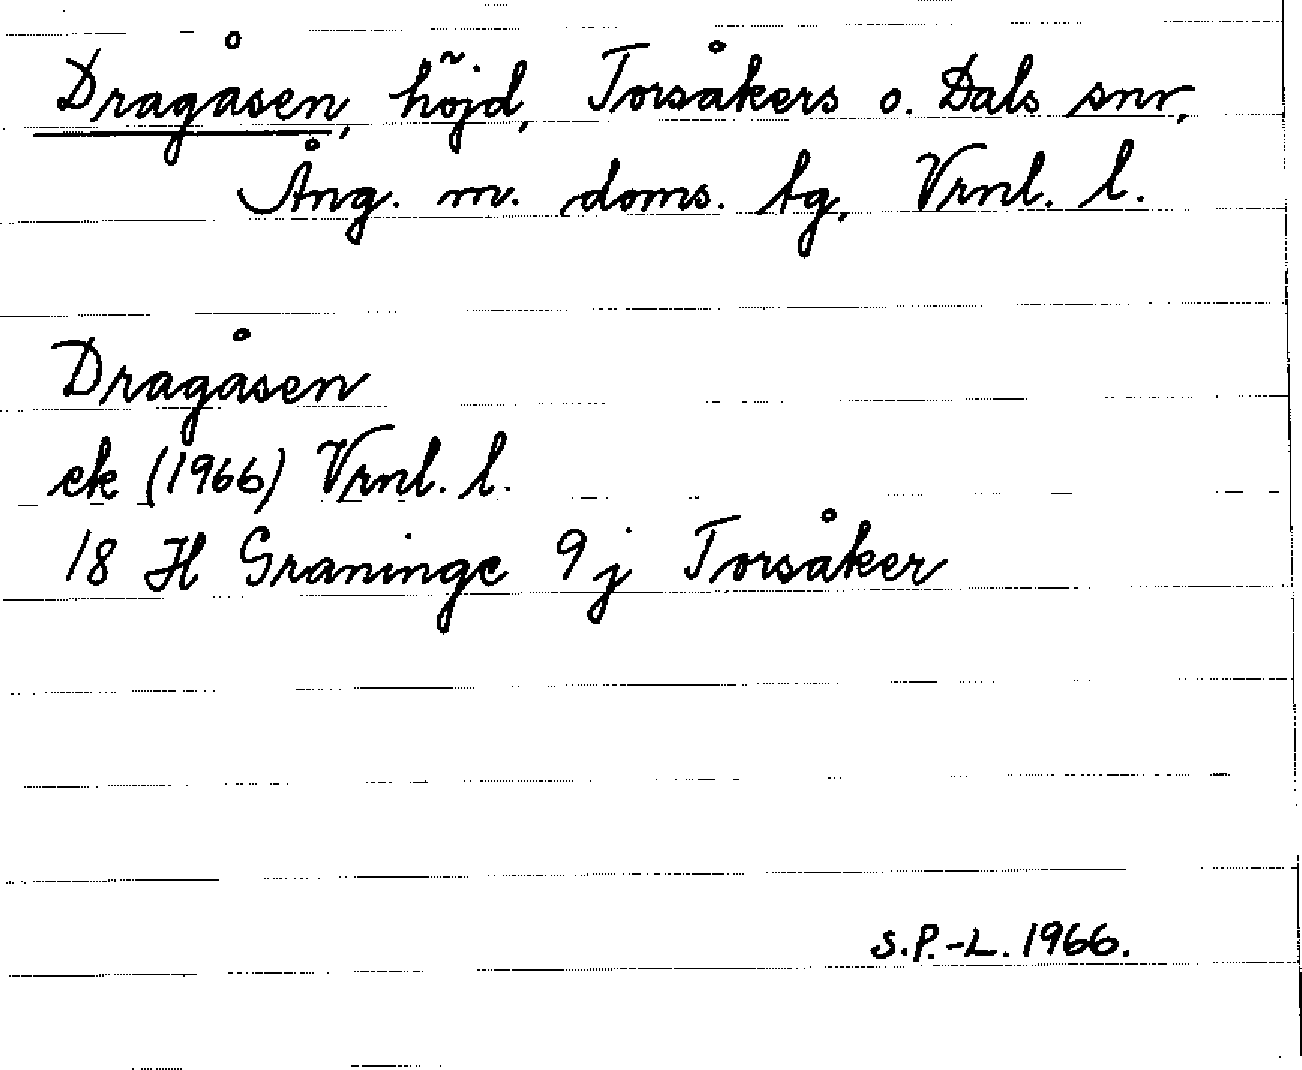 Dragåsen, höjd, Torsåkers o. Dals snr,
Ång. m. doms. tg, Vrnl. l.
Dragåsen
ek (1966) Vrnl. l.
18 H Graninge 9 j Torsåker
S.P.-L. 1966.